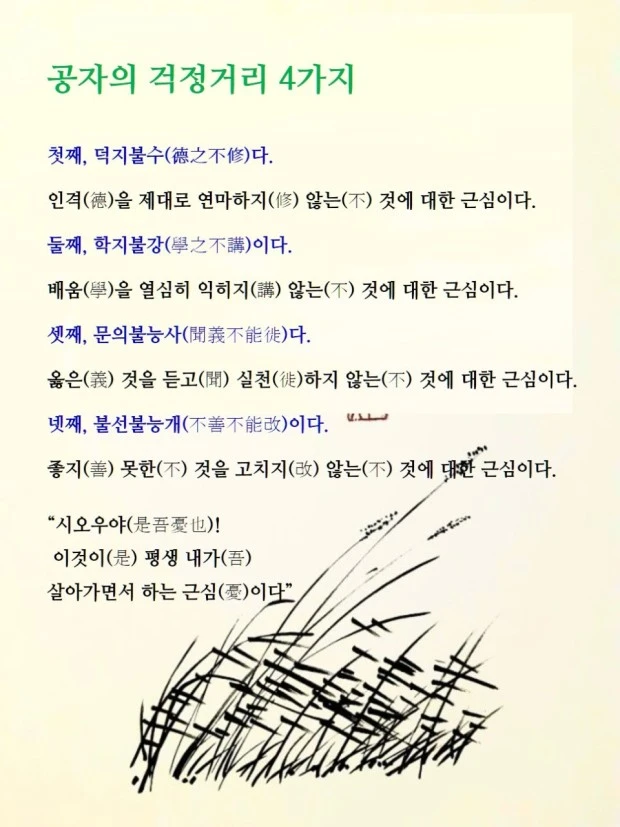 공자의 걱정거리 4가지
첫째, 덕지불수(德之不修)다.
인격(德)을 제대로 연마하지(修) 않는(不) 것에 대한 근심이다.
둘째, 학지불강(學之不講)이다.
배움(學)을 열심히 익히지(講) 않는(不) 것에 대한 근심이다.
셋째, 문의불능사(聞義不能徙)다.
옳은(義) 것을 듣고(聞) 실천(徙)하지 않는(不) 것에 대한 근심이다.
넷째, 불선불능개(不善不能改)이다.
좋지(善) 못한(不) 것을 고치지(改) 않는(不) 것에 대한 근심이다.
“시오우야(是吾憂也)!
이것이(是) 평생 내가(吾)
살아가면서 하는 근심(憂)이다”